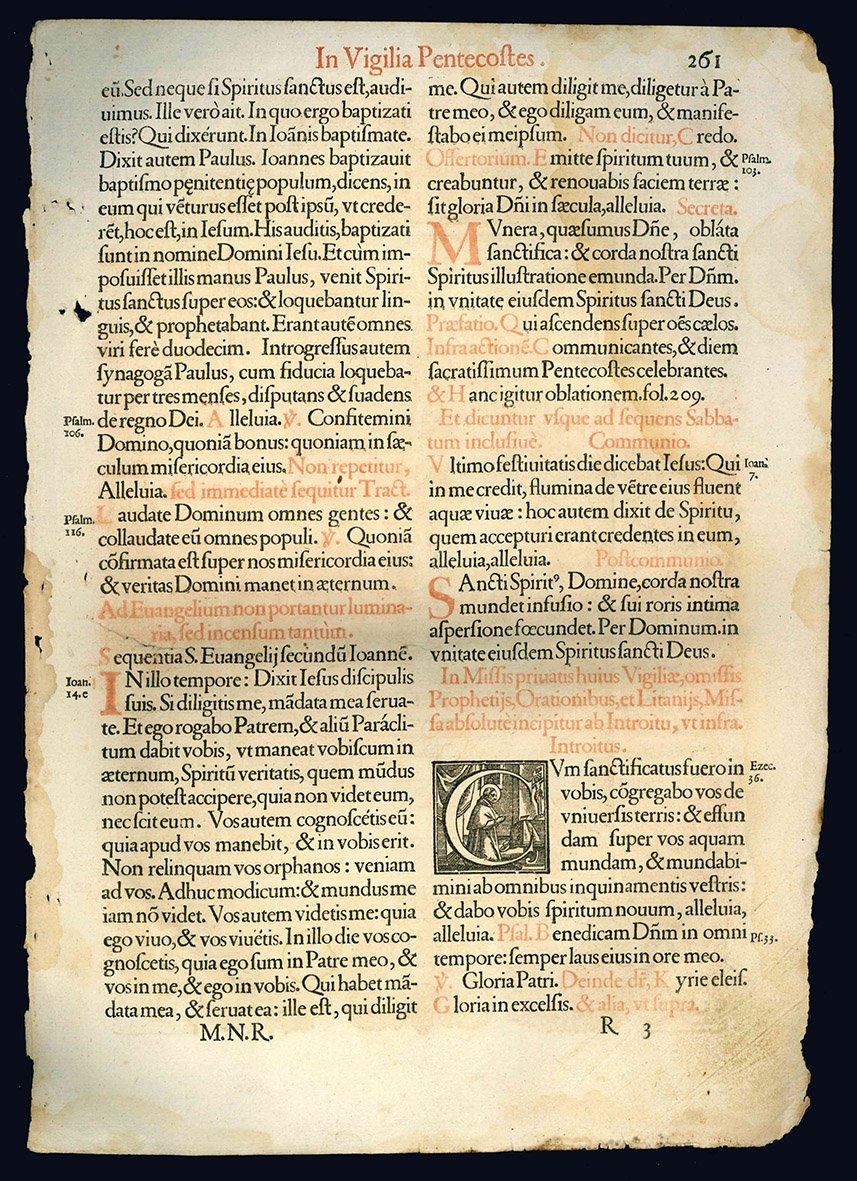 In Vigilia Pentecostes. 261
eũ. Sed neque si Spiritus sanctus est, audi-
uimus. Ille verò ait. In quo ergo baptizati
estis? Qui dixérunt. In Ioãnis baptismate.
Dixit autem Paulus. Ioannes baptizauit
baptismo pęnitentię populum, dicens, in
eum qui vẽturus esset post ipsũ, vt crede-
rẽt, hoc est, in Iesum. His auditis, baptizati
sunt in nomine Domini Iesu. Et cùm im-
posuisset illis manus Paulus, venit Spiri-
tus sanctus super eos: & loquebantur lin-
guis, & prophetabant. Erant autẽ omnes
viri ferè duodecim. Introgressus autem
synagogã Paulus, cum fiducia loqueba-
tur per tres menses, disputans & suadens
Psalm. 106.
de regno Dei. Alleluia. ℣. Confitemini
Domino, quoniã bonus: quoniam in sæ-
culum misericordia eius. Non repetitur,
Alleluia. sed immediatè sequitur Tract.
Psalm. 116.
Laudate Dominum omnes gentes: &
collaudate eũ omnes populi. ℣. Quoniã
cõfirmata est super nos misericordia eius:
& veritas Domini manet in æternum.
Ad Euangelium non portantur lumina-
ria, sed incensum tantùm.
Sequentia S. Euangelij secùndũ Ioannẽ.
Ioan. 14.c
IN illo tempore: Dixit Iesus discipulis
suis. Si diligitis me, mãdata mea serua-
te. Et ego rogabo Patrem, & aliũ Parácli-
tum dabit vobis, vt maneat vobiscum in
æternum, Spiritũ veritatis, quem mũdus
non potest accipere, quia non videt eum,
nec scit eum. Vos autem cognoscétis eũ:
quia apud vos manebit, & in vobis erit.
Non relinquam vos orphanos: veniam
ad vos. Adhuc modicum: & mundus me
iam nõ videt. Vos autem videtis me: quia
ego viuo, & vos viuétis. In illo die vos co-
gnoscetis, quia ego sum in Patre meo, &
vos in me, & ego in vobis. Qui habet mã-
data mea, & seruat ea: ille est, qui diligit
M.N.R.
me. Qui autem diligit me, diligetur à Pa-
tre meo, & ego diligam eum, & manife-
stabo ei meipsum. Non dicitur, Credo.
Offertorium. Emitte spiritum tuum, &
Psalm. 103.
creabuntur, & renouabis faciem terræ:
sit gloria Dñi in sæcula, alleluia. Secreta.
MVnera, quæsumus Dñe, obláta
sanctifica: & corda nostra sancti
Spiritus illustratione emunda. Per Dñm.
in vnitate eiusdem Spiritus sancti Deus.
Præfatio. Qui ascendens super oẽs cælos.
Infra actionẽ. Communicantes, & diem
sacratissimum Pentecostes celebrantes.
& Hanc igitur oblationem. fol. 209.
Et dicuntur vsque ad sequens Sabba-
tum inclusiuè. Communio.
Vltimo festiuitatis die dicebat Iesus: Qui
Ioan. 7.
in me credit, flumina de vẽtre eius fluent
aquæ viuæ: hoc autem dixit de Spiritu,
quem accepturi erant credentes in eum,
alleluia, alleluia. Postcommunio.
SAncti Spiritꝰ, Domine, corda nostra
mundet infusio: & sui roris intima
aspersione fœcundet. Per Dominum. in
vnitate eiusdem Spiritus sancti Deus.
In Missis priuatis huius Vigiliæ, omissis
Prophetijs, Orationibus, et Litanijs, Mis-
sa absolutè incipitur ab Introitu, vt infra.
Introitus.
CVm sanctificatus fuero in
Ezec. 36.
vobis, cõgregabo vos de
vniuersis terris: & effun
dam super vos aquam
mundam, & mundabi-
mini ab omnibus inquinamentis vestris:
& dabo vobis spiritum nouum, alleluia,
alleluia. Psal. Benedicam Dñm in omni
Ps. 33.
tempore: semper laus eius in ore meo.
℣. Gloria Patri. Deinde dr̃, Kyrie eleis.
Gloria in excelsis. & alia, vt supra.
R 3